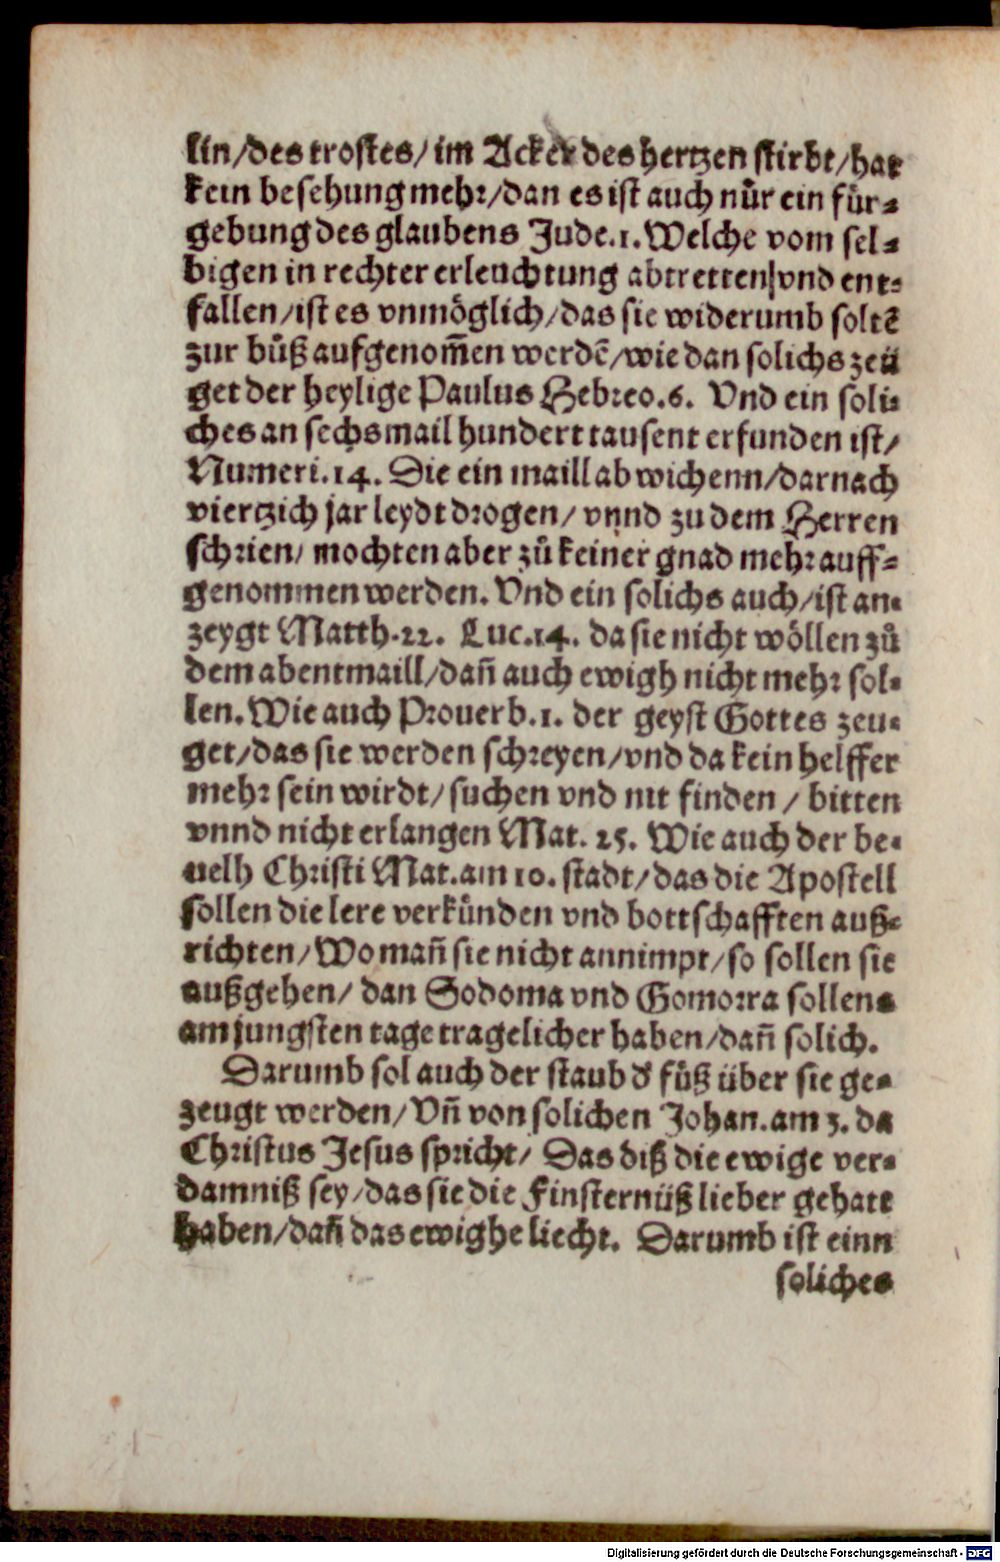 lin/des trostes/im Acker des hertzen stirbt/hat
kein besehung mehr/dan es ist auch nůr ein für-
gebung des glaubens Jude.1. Welche vom sel-
bigen in rechter erleuchtung abtretten/vnd ent-
fallen/ist es vnmöglich/das sie widerumb soltẽ
zur bůß aufgenom̃en werdẽ/wie dan solichs zeü
get der heylige Paulus Hebreo.6. Vnd ein soli-
ches an sechsmail hundert tausent erfunden ist/
Numeri.14. Die ein maill ab wichenn/darnach
viertzich jar leydt drogen/vnnd zu dem Herren
schrien/mochten aber zů keiner gnad mehr auff-
genommen werden. Vnd ein solichs auch/ist an-
zeygt Matth.22. Luc.14. da sie nicht wöllen zů
dem abentmaill/dañ auch ewigh nicht mehr sol-
len. Wie auch Prouerb.1. der geyst Gottes zeu-
get/das sie werden schreyen/vnd da kein helffer
mehr sein wirdt/suchen vnd nit finden/bitten
vnnd nicht erlangen Mat. 25. Wie auch der be-
uelh Christi Mat.am 10. stadt/das die Apostell
sollen die lere verkünden vnd bottschafften auß-
richten/Wo mañ sie nicht annimpt/so sollen sie
außgehen/dan Sodoma vnd Gomorra sollens
am jungsten tage tragelicher haben/dañ solich.
Darumb sol auch der staub d̕ fůß über sie ge-
zeugt werden/Vñ von solichen Johan.am 3. da
Christus Jesus spricht/ Das diß die ewige ver-
damniß sey/das sie die Finsternüß lieber gehatt
haben/dañ das ewighe liecht. Darumb ist einn
soliches
Digitalisierung gefördert durch die Deutsche Forschungsgemeinschaft - DFG